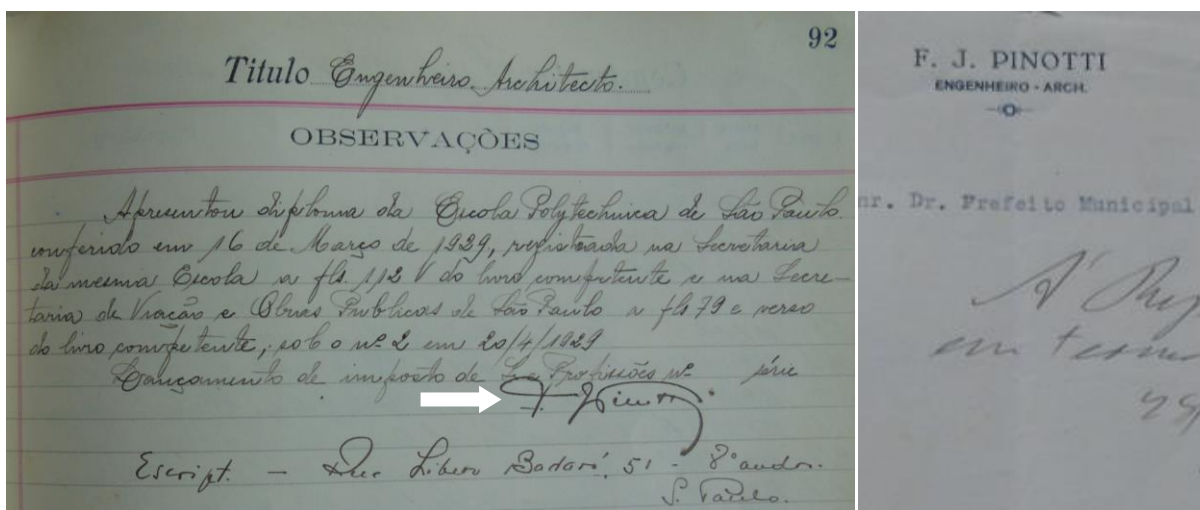 92
Titulo Engenheiro Architecto.
OBSERVAÇÕES
Apresentou diploma da Escola Polytechnica de São Paulo
conferido em 16 de Março de 1929, registrada na Secretaria
da mesma Escola a fls. 112 V do livro competente e na Secre-
taria da Viação e Obras Publicas de São Paulo a fls 79 e verso
do livro competente, sob o nº 2 em 20/4/1929
Lançamento de imposto de I. e Profissões nº série
F. J. Pinotti
Escript. - Rua Libero Badaró, 51 - 8º andar.
S. Paulo.
F. J. PINOTTI
ENGENHEIRO - ARCH.
nr. Dr. Prefeito Municipal
Á
em